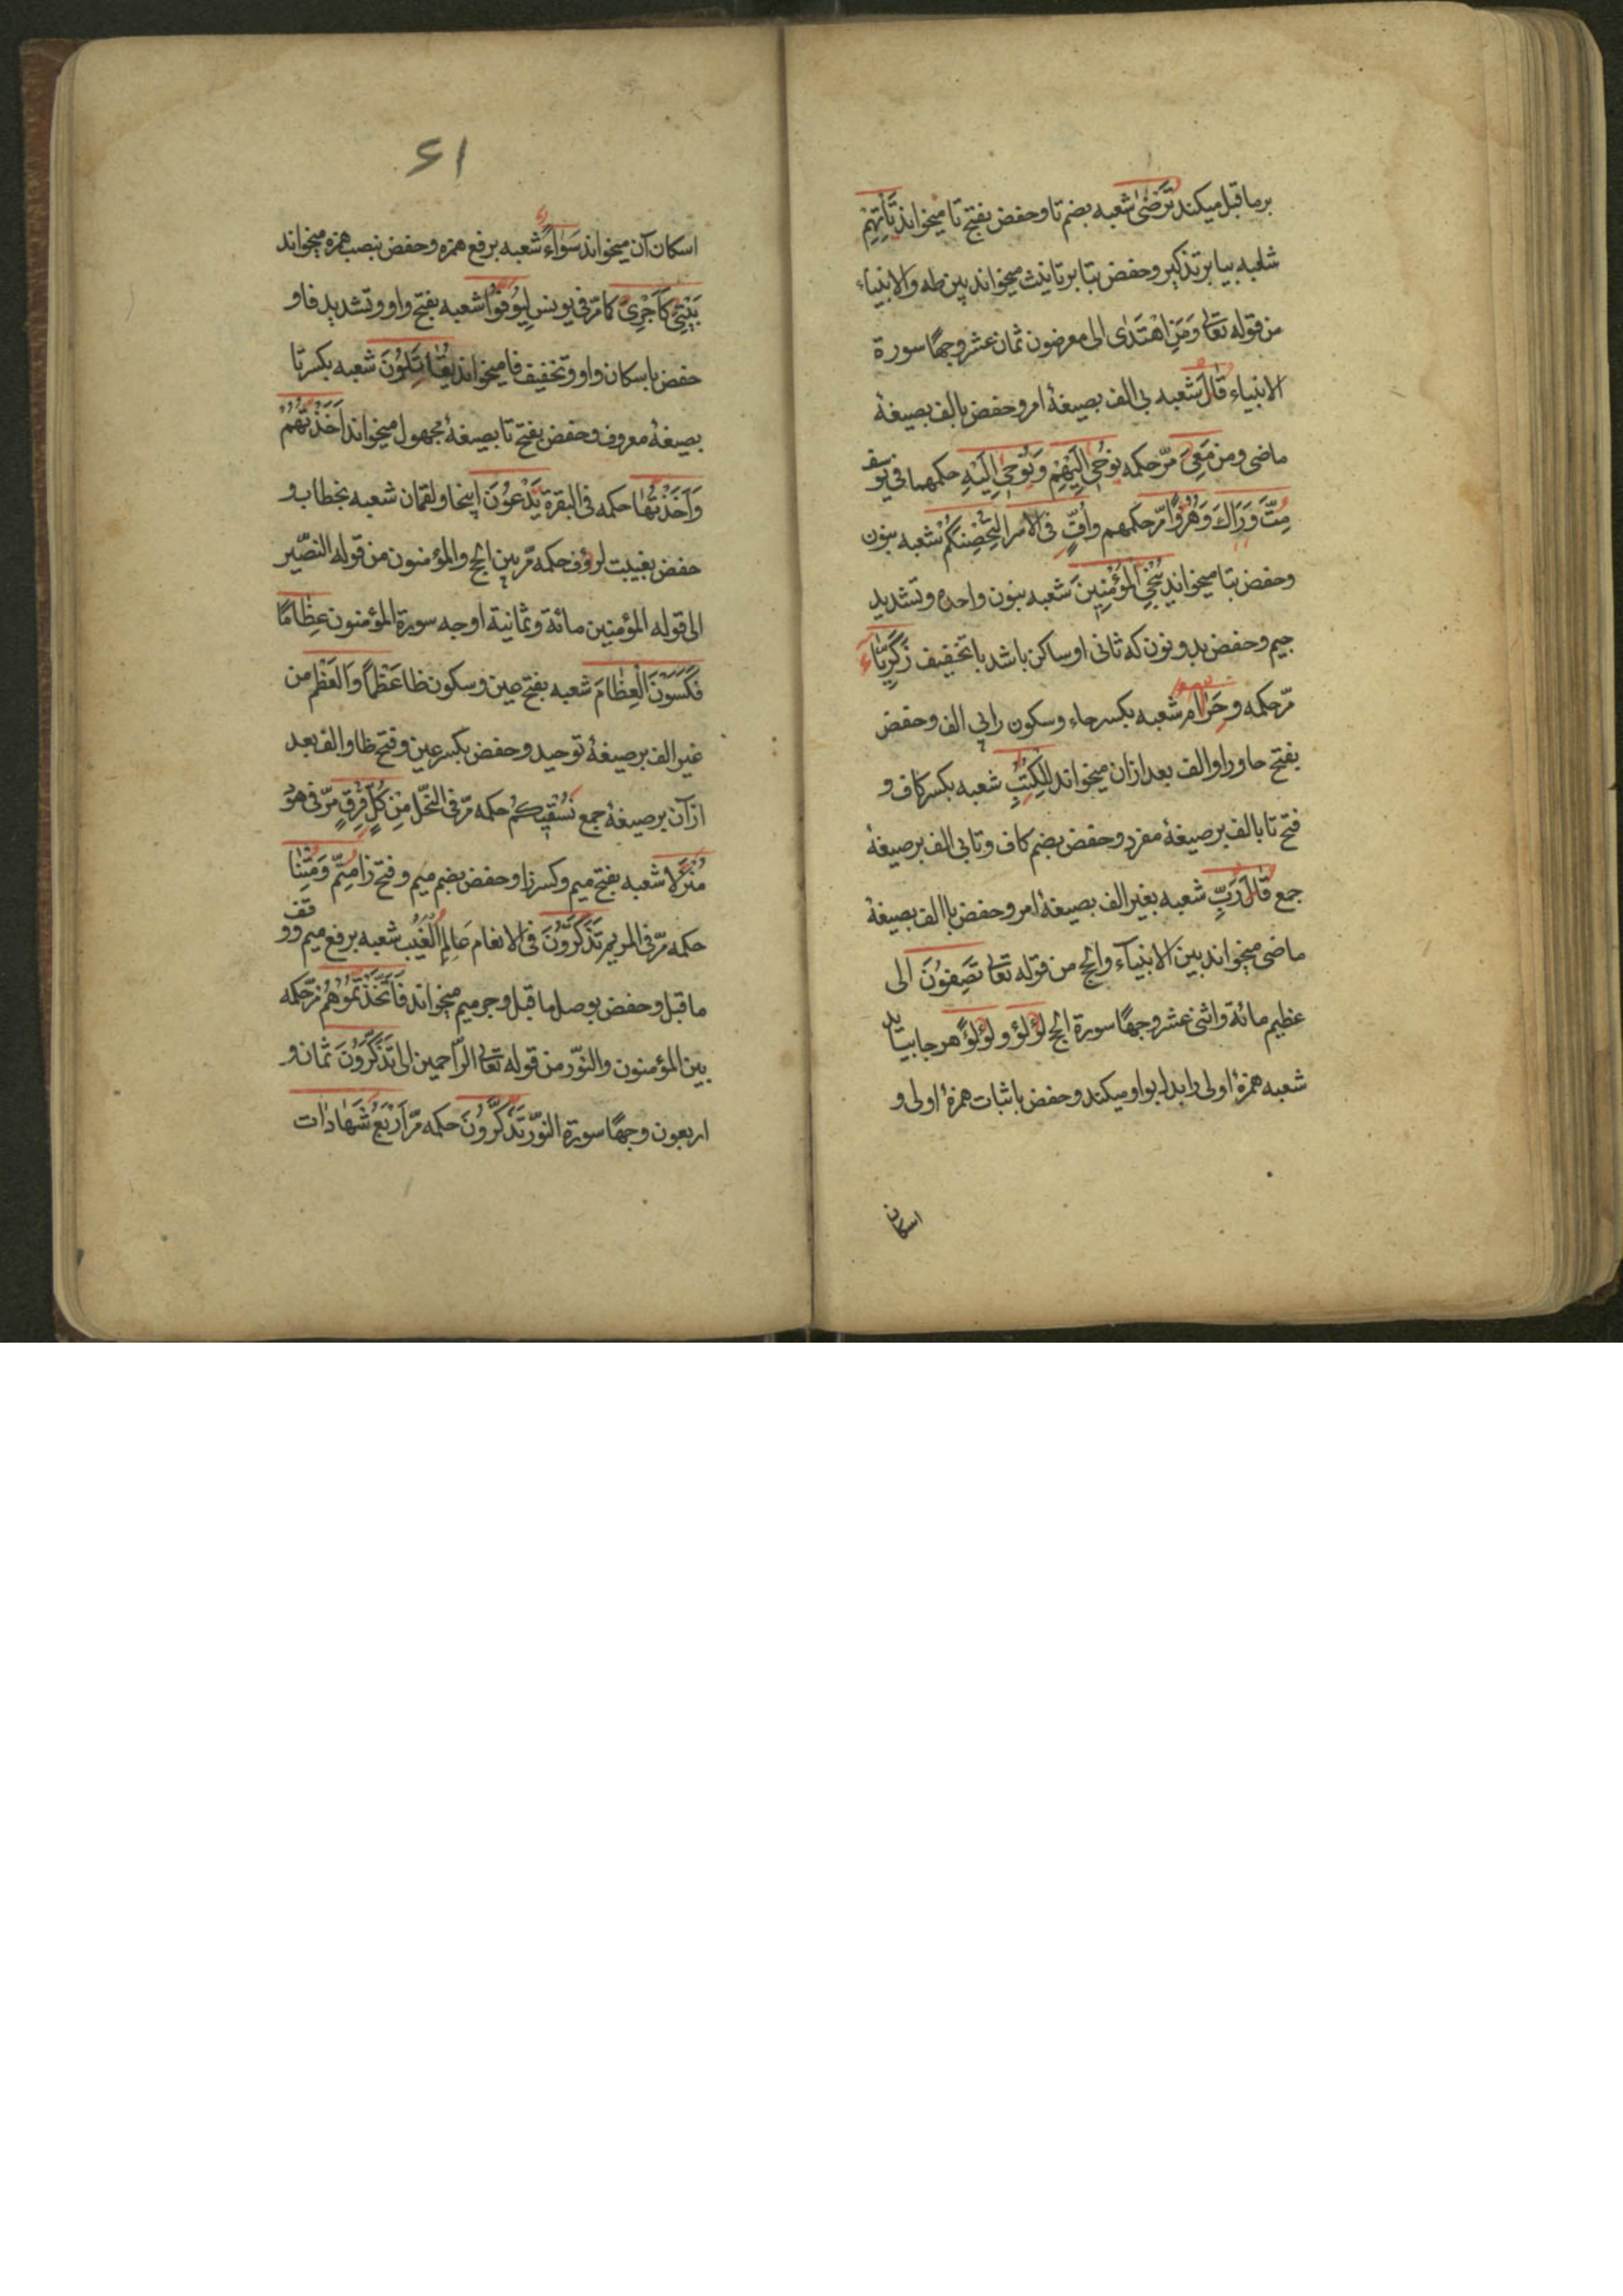 برما قبل میکند تَرْضٰی شعبه بضم تا وحفض بفتح تا میخواند تَأْتِهِمْ
شعبه بیا برتذکیر وحفض بتا برتانیث میخواند بین طه والانبیاء
من قوله تعالی وَمَنِ اهْتَدٰی الی معرضون ثمان عشر وجهًا سورة
الانبیاء قَالَ شعبه بی الف بصیغهٔ امر وحفض بالف بصیغهٔ
ماضی ومن مَعِیَ مرّ حکمه نوحِی اِلَیْهِمْ وَنُوحِی اِلَیْهِ حکمهما فی یوسف
مِتَّ وَرَاٰكَ وَهُزُوًا مرّ حکمهم واُفٍّ فی الاسرا لِتُحْصِنَكُمْ شعبه بنون
وحفض بتا میخواند نُنْجِی الْمُؤْمِنِینَ شعبه بنون واحده وتشدید
جیم وحفض بدو نون که ثانی او ساکن باشد با تخفیف زَكَرِیَّاءَ
مرّ حکمه وحَرَامٌ شعبه بکسر حاء وسکون را بی الف وحفض
بفتح حا ورا والف بعد ازان میخواند لِلْكُتُبِ شعبه بکسر کاف و
فتح تا بالف برصیغهٔ مفرد وحفض بضم کاف وتا بی الف برصیغهٔ
جمع قَالَ رَبِّ شعبه بغیر الف بصیغهٔ امر وحفض باالف بصیغهٔ
ماضی میخواند بین الانبیاء والحج من قوله تعالی تَصِفُونَ الی
عظیم مائة واثنی عشر وجهًا سورة الحج لُؤْلُؤ ولُؤْلُؤًا هرجا بیاید
شعبه همزهٔ اولی را بدل بواو میکند وحفض باثبات همزهٔ اولی و
اسکان
۶۱
اسکان آن میخواند سَوَاءً شعبه برفع همزه وحفض بنصب همزه میخواند
بَیْتِیَ کَاَجْرِیَ کما مرّ فی یونس لِیُوفُوا شعبه بفتح واو وتشدید فا و
حفض باسکان واو وتخفیف فا میخواند یُقَاتَلُونَ شعبه بکسر تا
بصیغهٔ معروف وحفض بفتح تا بصیغهٔ مجهول میخواند اَخَذْتُهُمْ
وَاَخَذْتُهَا حکمه فی البقرة یَدْعُونَ اینجا ولقمان شعبه بخطاب و
حفض بغیبت لرؤف حکمه مرّ بین الحج والمؤمنون من قوله النصیر
الی قوله المؤمنین مائة وثمانیة اوجه سورة المؤمنون عِظَامًا
فَكَسَوْنَا الْعِظَامَ شعبه بفتح عین وسکون ظا عَظْمًا وَالْعَظْمَ من
غیر الف برصیغهٔ توحید وحفض بکسر عین وفتح ظا والف بعد
ازآن برصیغهٔ جمع نُسْقِیكُمْ حکمه مرّ فی النحل مِنْ كُلٍّ فِرْقٍ مرّ فی هود
مُنْزَلًا شعبه بفتح میم وکسر زا وحفض بضم میم وفتح زا مِتُّمْ وَمِتْنَا
حکمه مرّ فی المریم تَذَكَّرُونَ فی الانعام عَالِمِ الْغَیْبِ شعبه برفع میم ووقف
ماقبل وحفض بوصل ماقبل وجر میم میخواند فَاتَّخَذْتُمُوهُمْ مرّ حکمه
بین المؤمنون والنوّر من قوله تعالی الرّاحمین الی تَذَكَّرُونَ ثمان و
اربعون وجهًا سورة النوّر تَذَكَّرُونَ حکمه مرّ اَرْبَعُ شَهَادَات